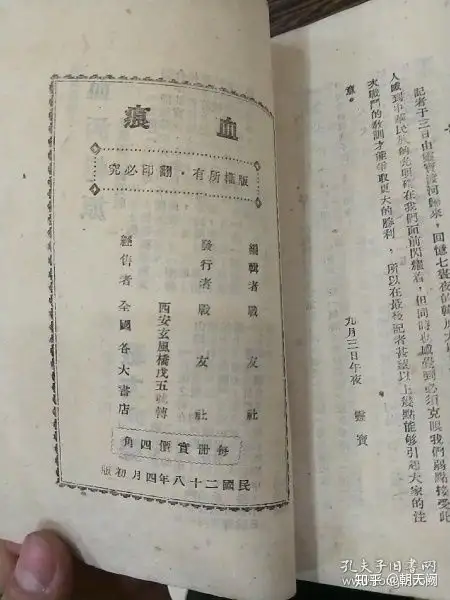 記者于三日由靈寶渡河歸來，回憶七晝夜的
人感到中華民族的光明確在我們面前閃耀着，但同時我感覺到必須克服我們弱點接受此
次戰鬥的教訓才能爭取更大的勝利，所以在最後記者甚望以上幾點能够引起大家的注
意。
九月三日午夜 靈寶
血痕
版權所有·翻印必究
編輯者 戰友社
發行者 戰友社
西安玄風橋戊五號轉
經售者 全國各大書店
每冊實價四角
民國二十八年四月初版
孔夫子旧书网
知乎 @朝天阙